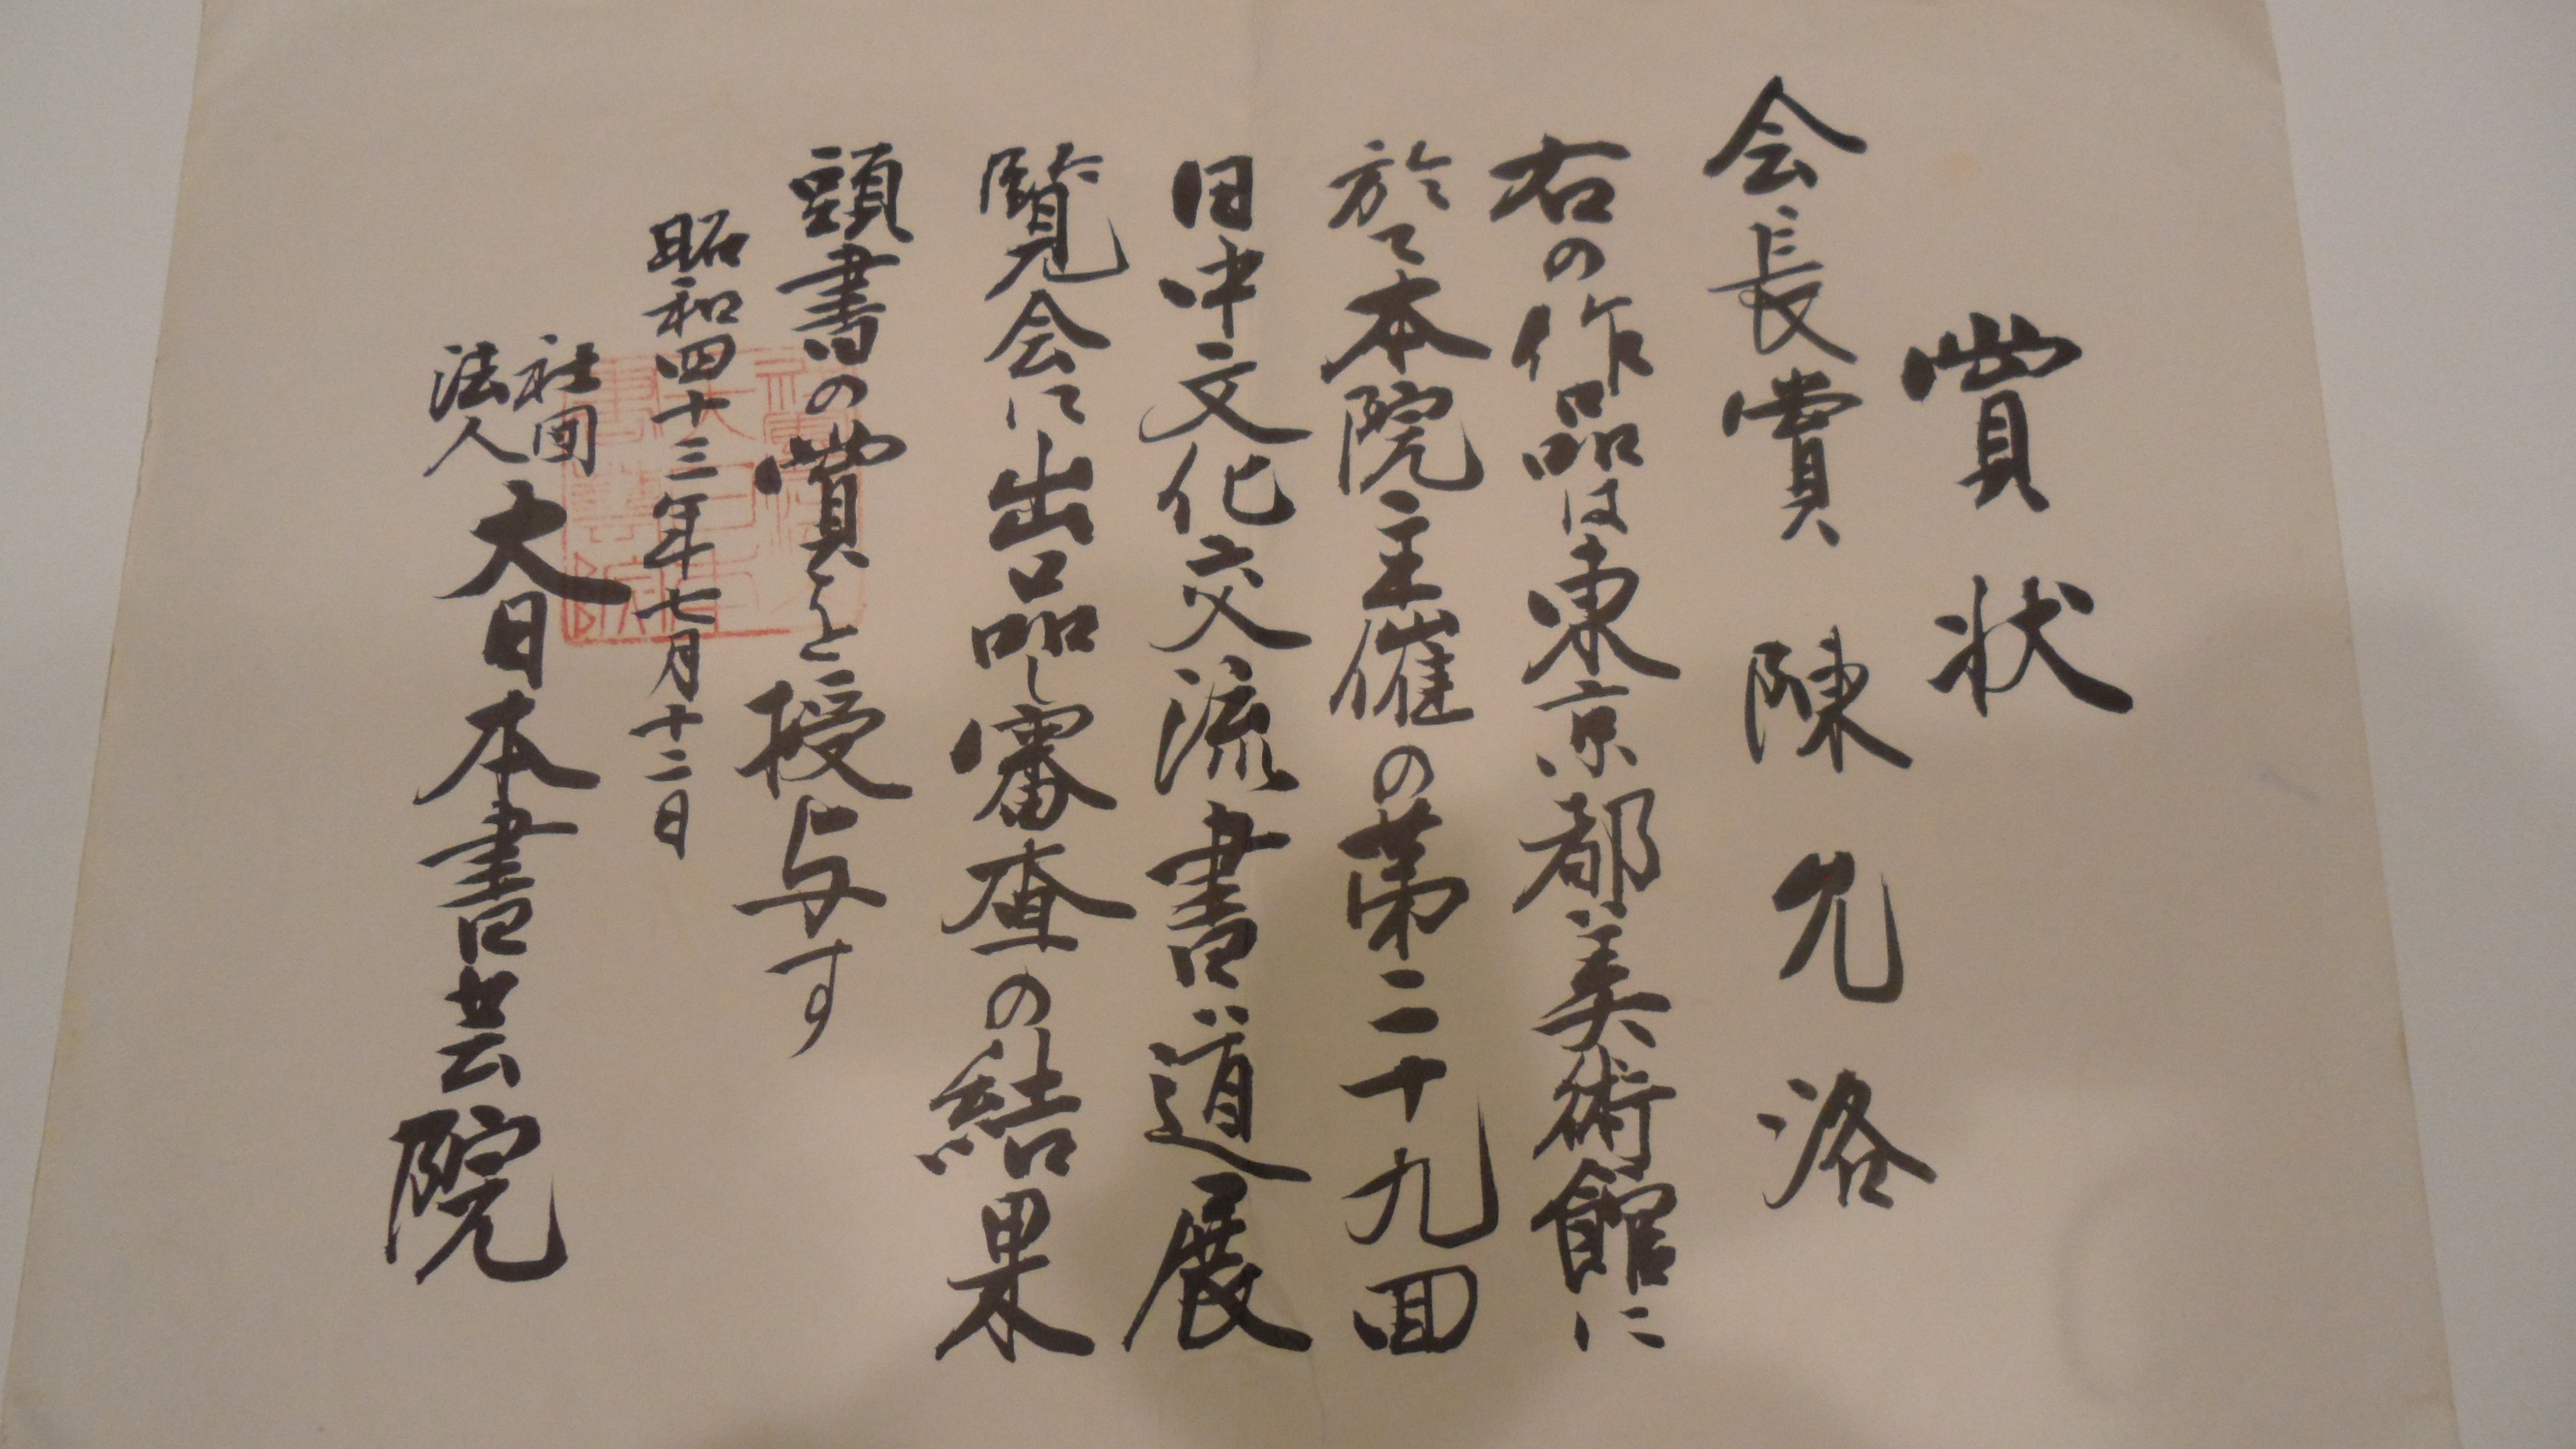 賞状
会長賞 陳允洛
右の作品は東京都美術館に
於て本院主催の第二十九回
日中文化交流書道展
覧会に出品し審査の結果
頭書の賞を授与す
昭和四十三年七月十二日
社団法人 大日本書芸院